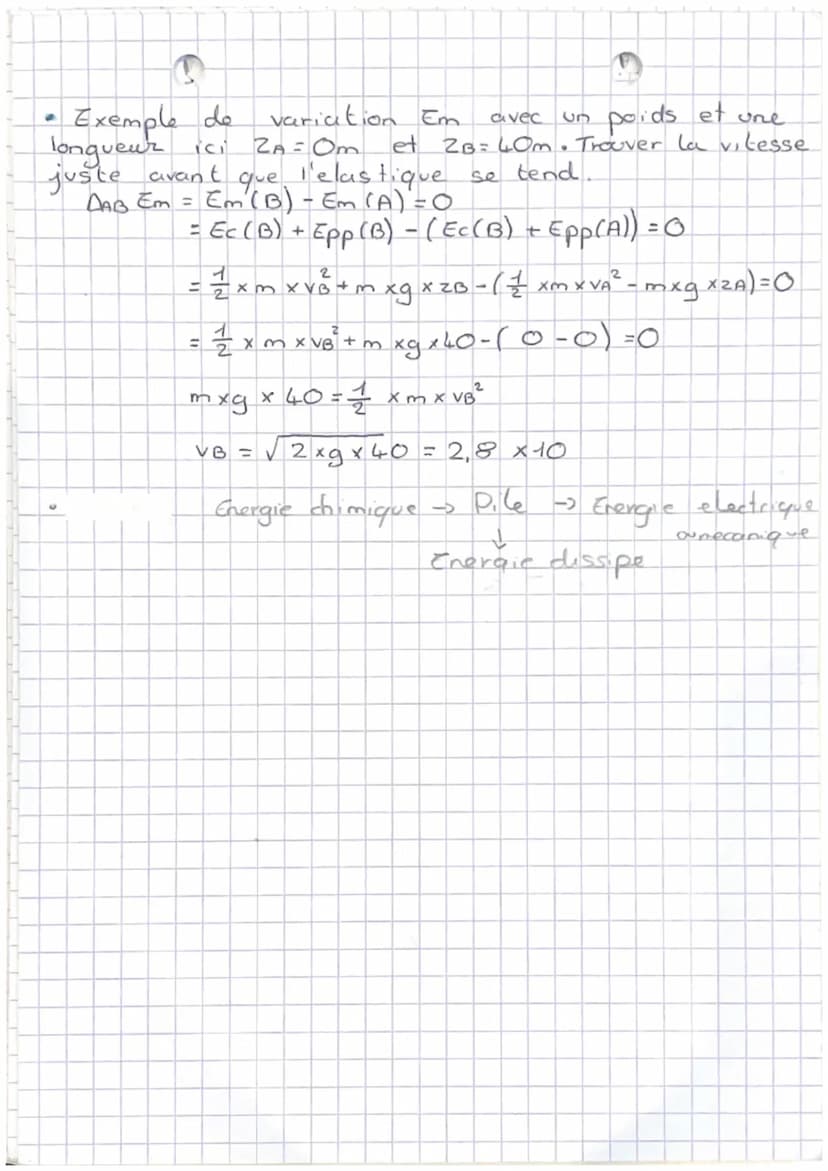 • Exemple de variation Em avec un poids et une
longueur ici ZA = 0m et ZB = 40m. Trouver la vitesse
juste avant que l'elastique se tend.
ΔAB Em = Em(B) - Em(A) = 0
= Ec(B) + Epp(B) - (Ec(B) + Epp(A)) = 0
= 1/2 × m × vB² + m × g × zB - (1/2 × m × vA² - m × g × zA) = 0
= 1/2 × m × vB² + m × g × 40 - (0 - 0) = 0
m × g × 40 = 1/2 × m × vB²
vB = √2 × g × 40 = 2,8 × 10
• Energie chimique → Pile → Energie electrique
↓ ou mecanique
Energie dissipe